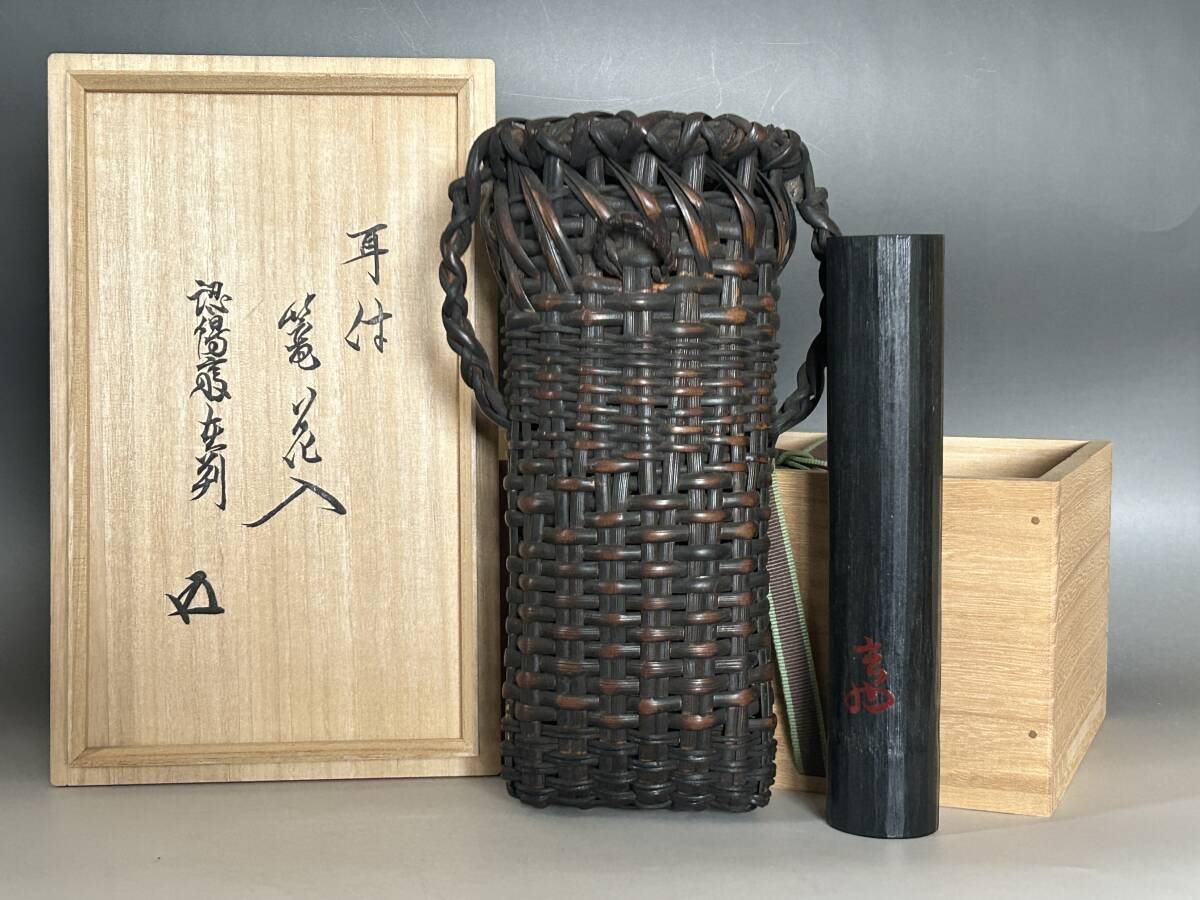 耳付
籠花入
認得齋在判